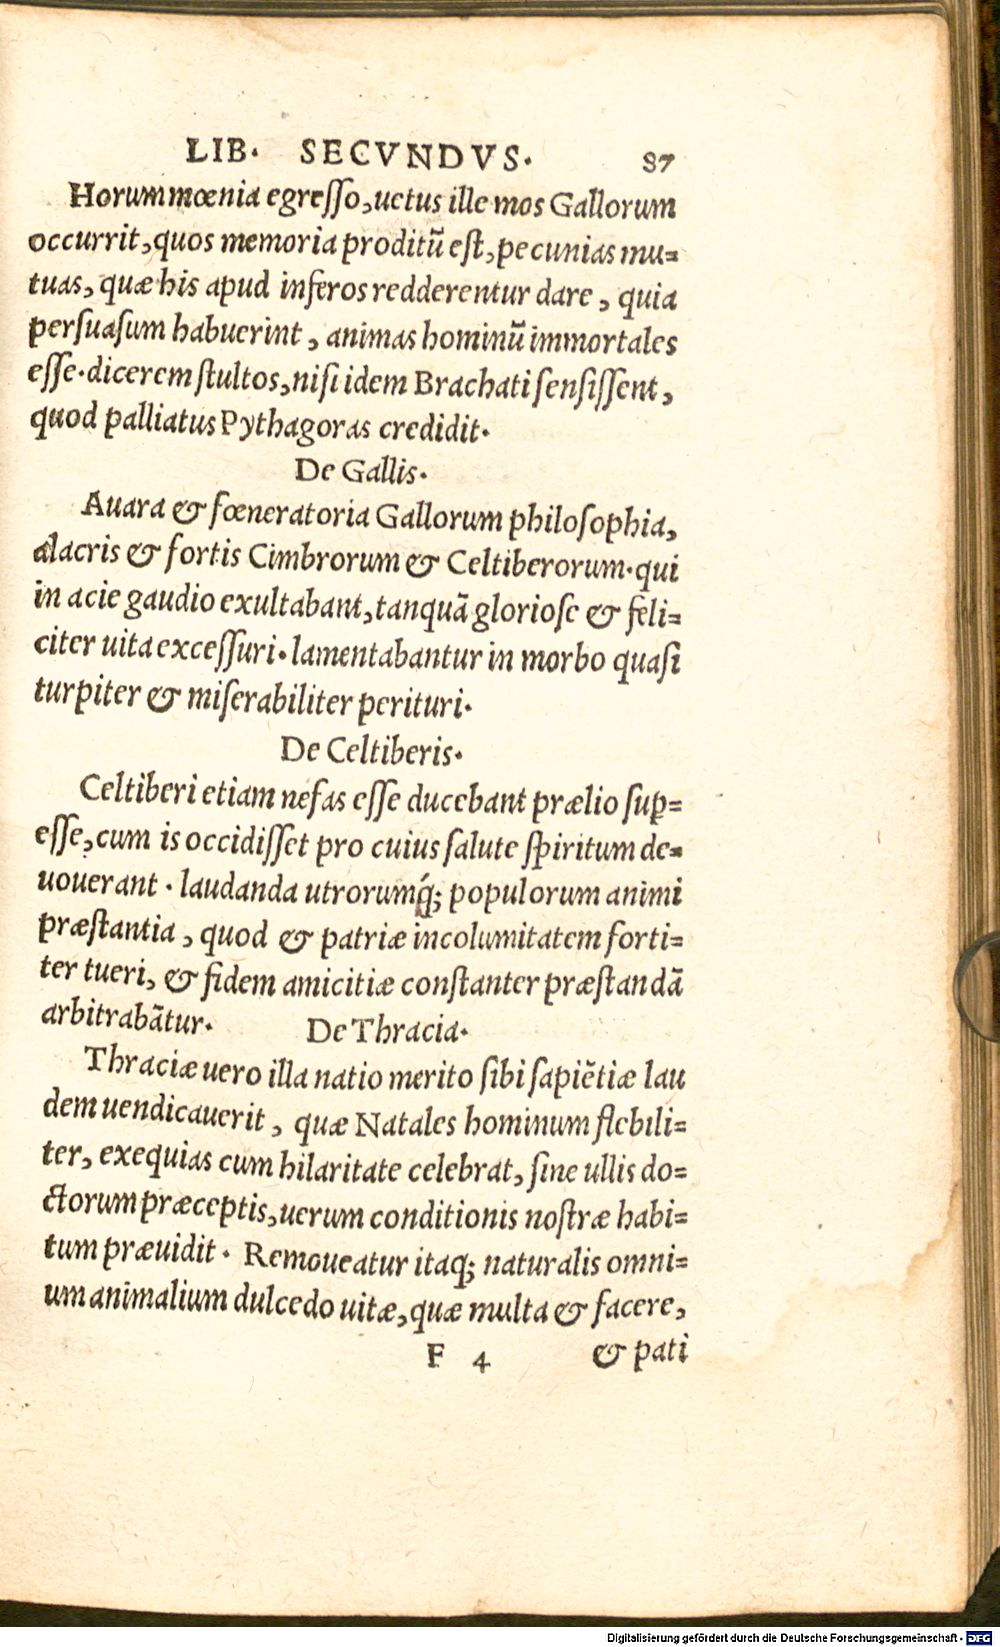 LIB. SECVNDVS. 87
Horum mœnia egresso, uetus ille mos Gallorum
occurrit, quos memoria proditũ est, pecunias mu=
tuas, quæ his apud inferos redderentur dare, quia
persuasum habuerint, animas hominũ immortales
esse. dicerem stultos, nisi idem Brachati sensissent,
quod palliatus Pythagoras credidit.
De Gallis.
Auara & fœneratoria Gallorum philosophia,
alacris & fortis Cimbrorum & Celtiberorum. qui
in acie gaudio exultabant, tanquã gloriose & feli=
citer uita excessuri. lamentabantur in morbo quasi
turpiter & miserabiliter perituri.
De Celtiberis.
Celtiberi etiam nefas esse ducebant prælio sup=
esse, cum is occidisset pro cuius salute spiritum de=
uouerant. laudanda utrorumq́; populorum animi
præstantia, quod & patriæ incolumitatem forti=
ter tueri, & fidem amicitiæ constanter præstandã
arbitrabãtur. De Thracia.
Thraciæ uero illa natio merito sibi sapiẽtiæ lau
dem uendicauerit, quæ Natales hominum flebili=
ter, exequias cum hilaritate celebrat, sine ullis do=
ctorum præceptis, uerum conditionis nostræ habi=
tum præuidit. Remoueatur itaq; naturalis omni=
um animalium dulcedo uitæ, quæ multa & facere,
F 4 & pati
Digitalisierung gefördert durch die Deutsche Forschungsgemeinschaft - DFG